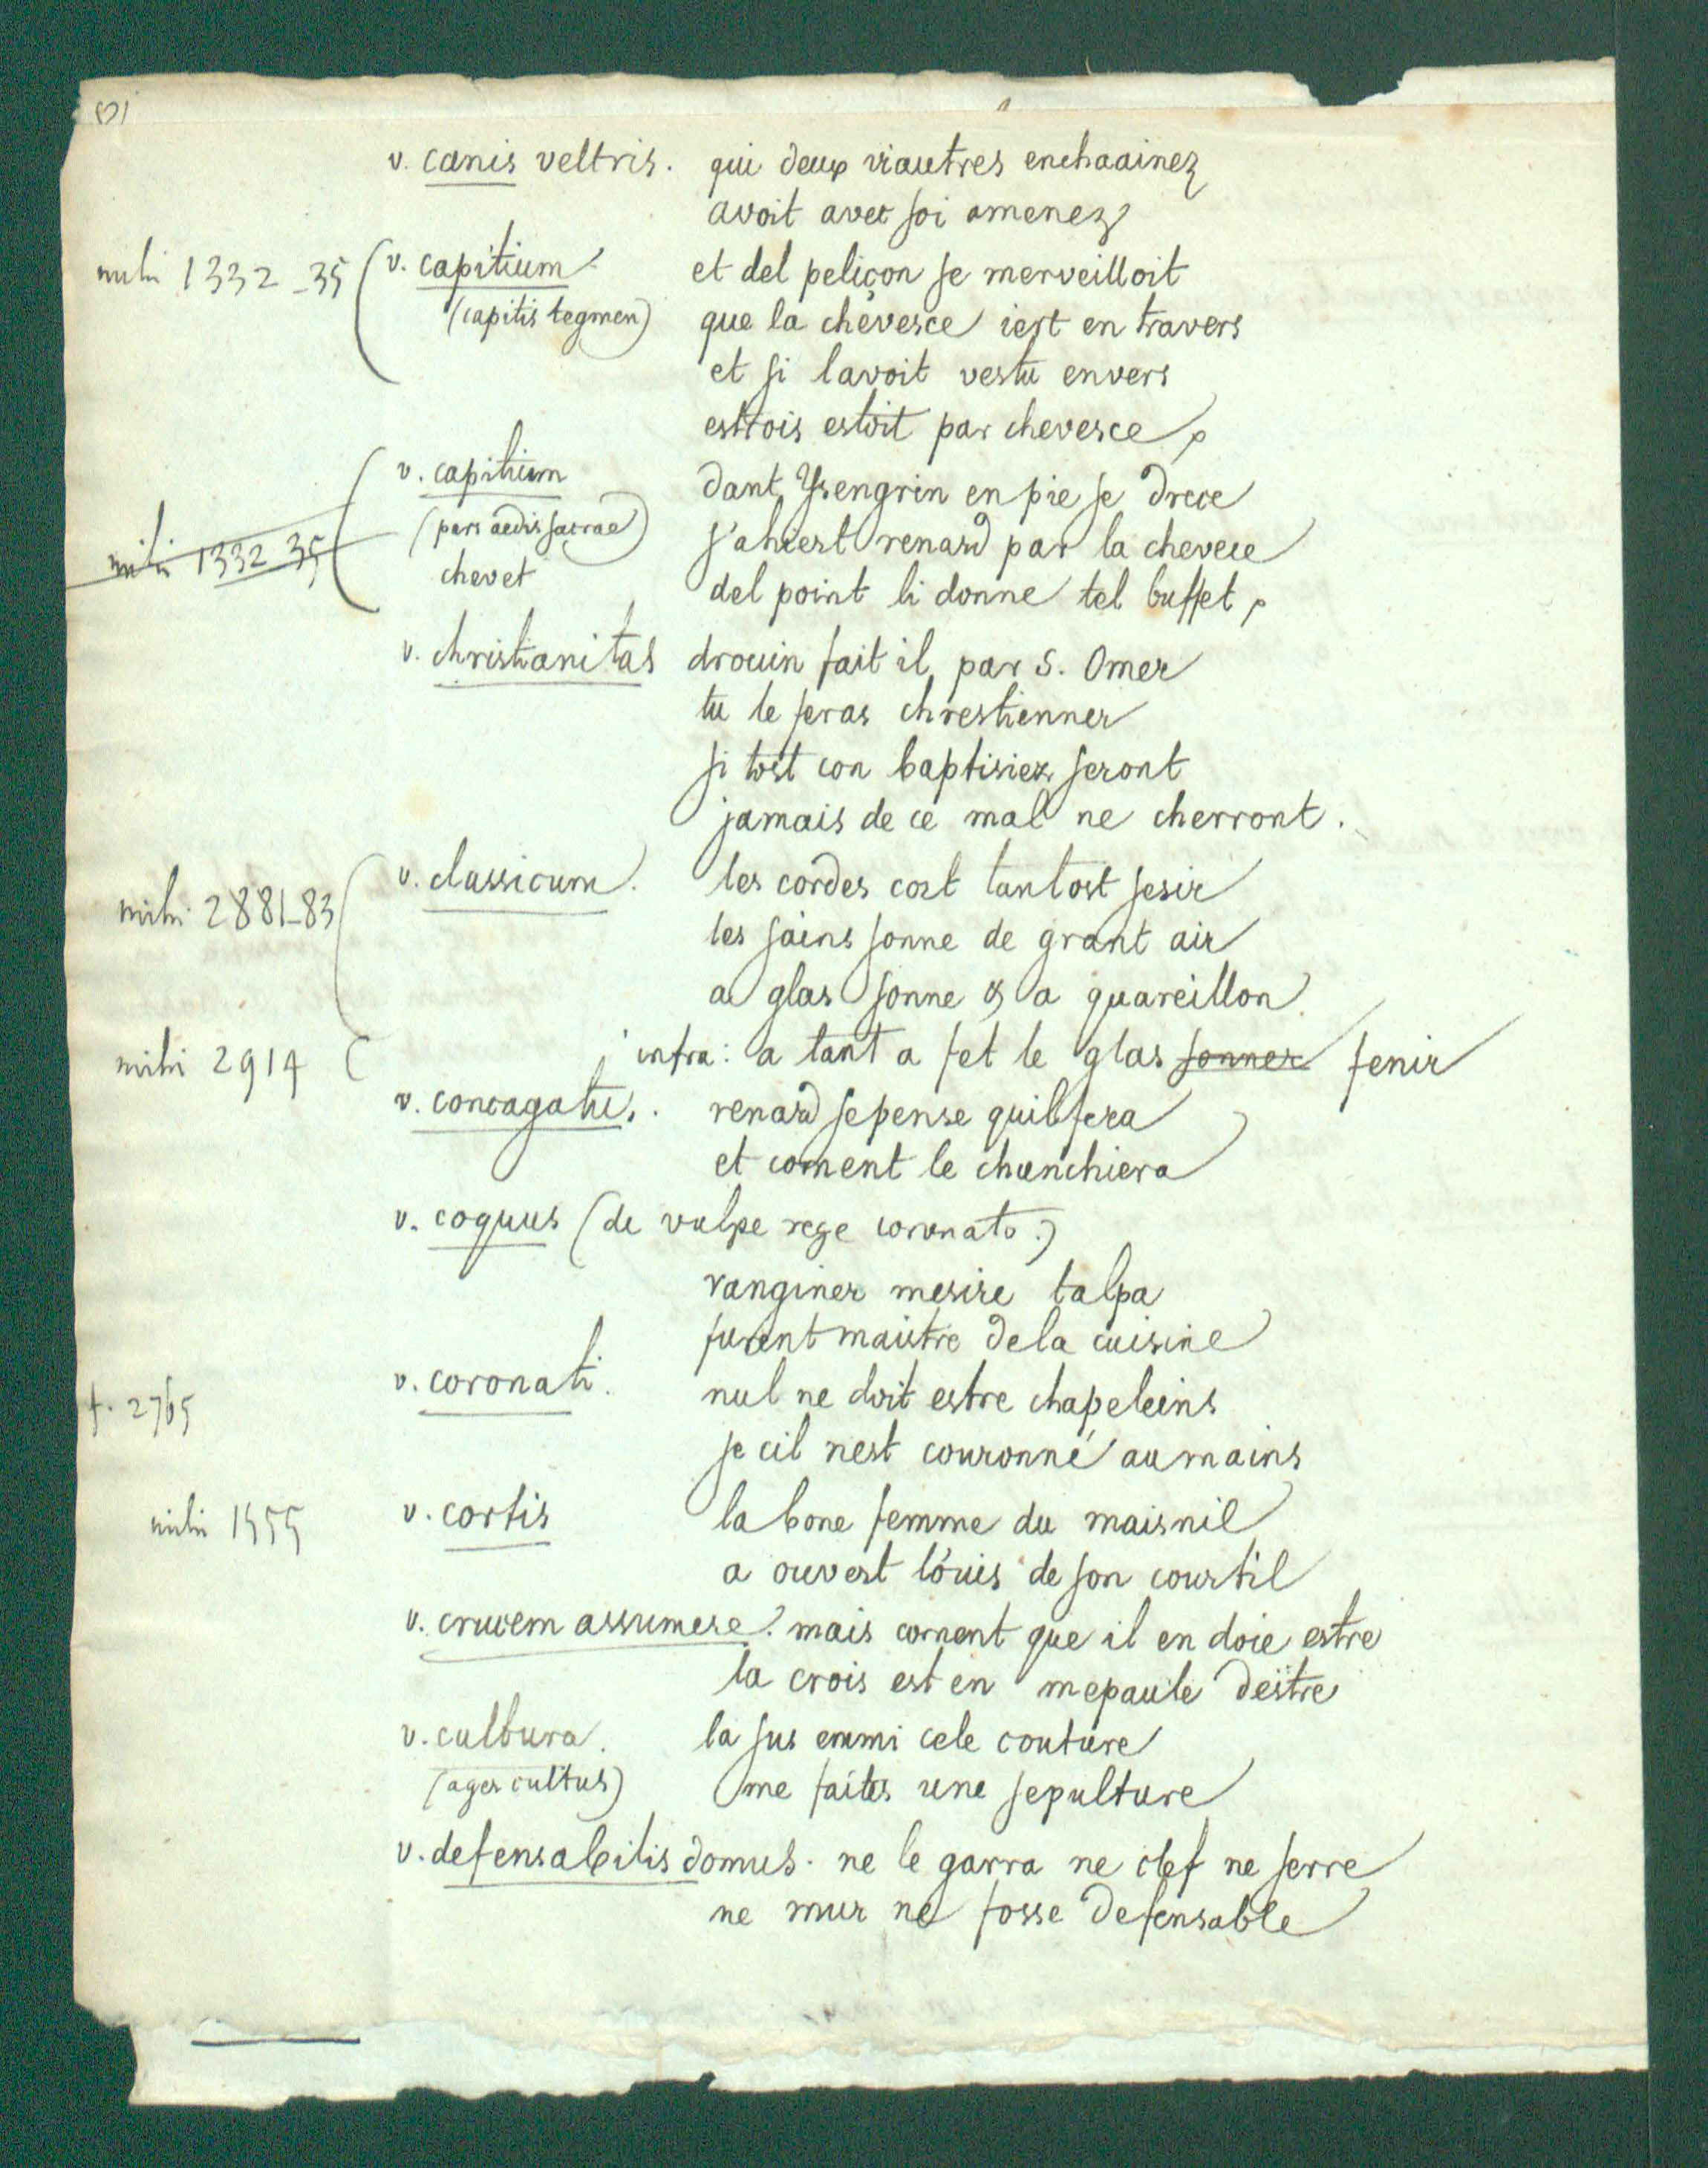 v. canis veltris. qui deux viautres enchaainez
avoit avec soi amenez
mihi 1332-35 v. capitium et del peliçon se merveilloit
(capitis tegmen) que la chevesce iert en travers
et si lavoit vestu envers
estrois estoit par chevesce,
v. capitium dant Ysengrin en pie se drece
(pars aedis sacrae) s'ahiert renard par la chevece
mihi 1332 35
chevet del point li donne tel buffet,
v. christianitas drouin fait il, par S. Omer
tu le feras chrestienner
si tost con baptisiez seront
jamais de ce mal ne cherront.
mihi 2881-83 v. classicum. les cordes cort tantost sesir
les sains sonne de grant air
a glas sonne & a quareillon
mihi 2914 infra: a tant a fet le glas sonner fenir
v. concagatus. renard se pense quil fera
et coment le chunchiera
v. coquus (de vulpe rege coronato.)
ranginer mesire talpa
furent maistre de la cuisine
f. 2765 v. coronati. nul ne doit estre chapeleins
se cil nest couronné au mains
mihi 1555 v. cortis la bone femme du maisnil
a ouvert l'ouis de son courtil
v. crucem assumere. mais coment que il en doie estre
la crois est en mepaule destre
v. cultura. la sus enmi cele couture
(ager cultus) me faites une sepulture
v. defensabilis domus. ne le garra ne clef ne serre
ne mur ne fosse defensable